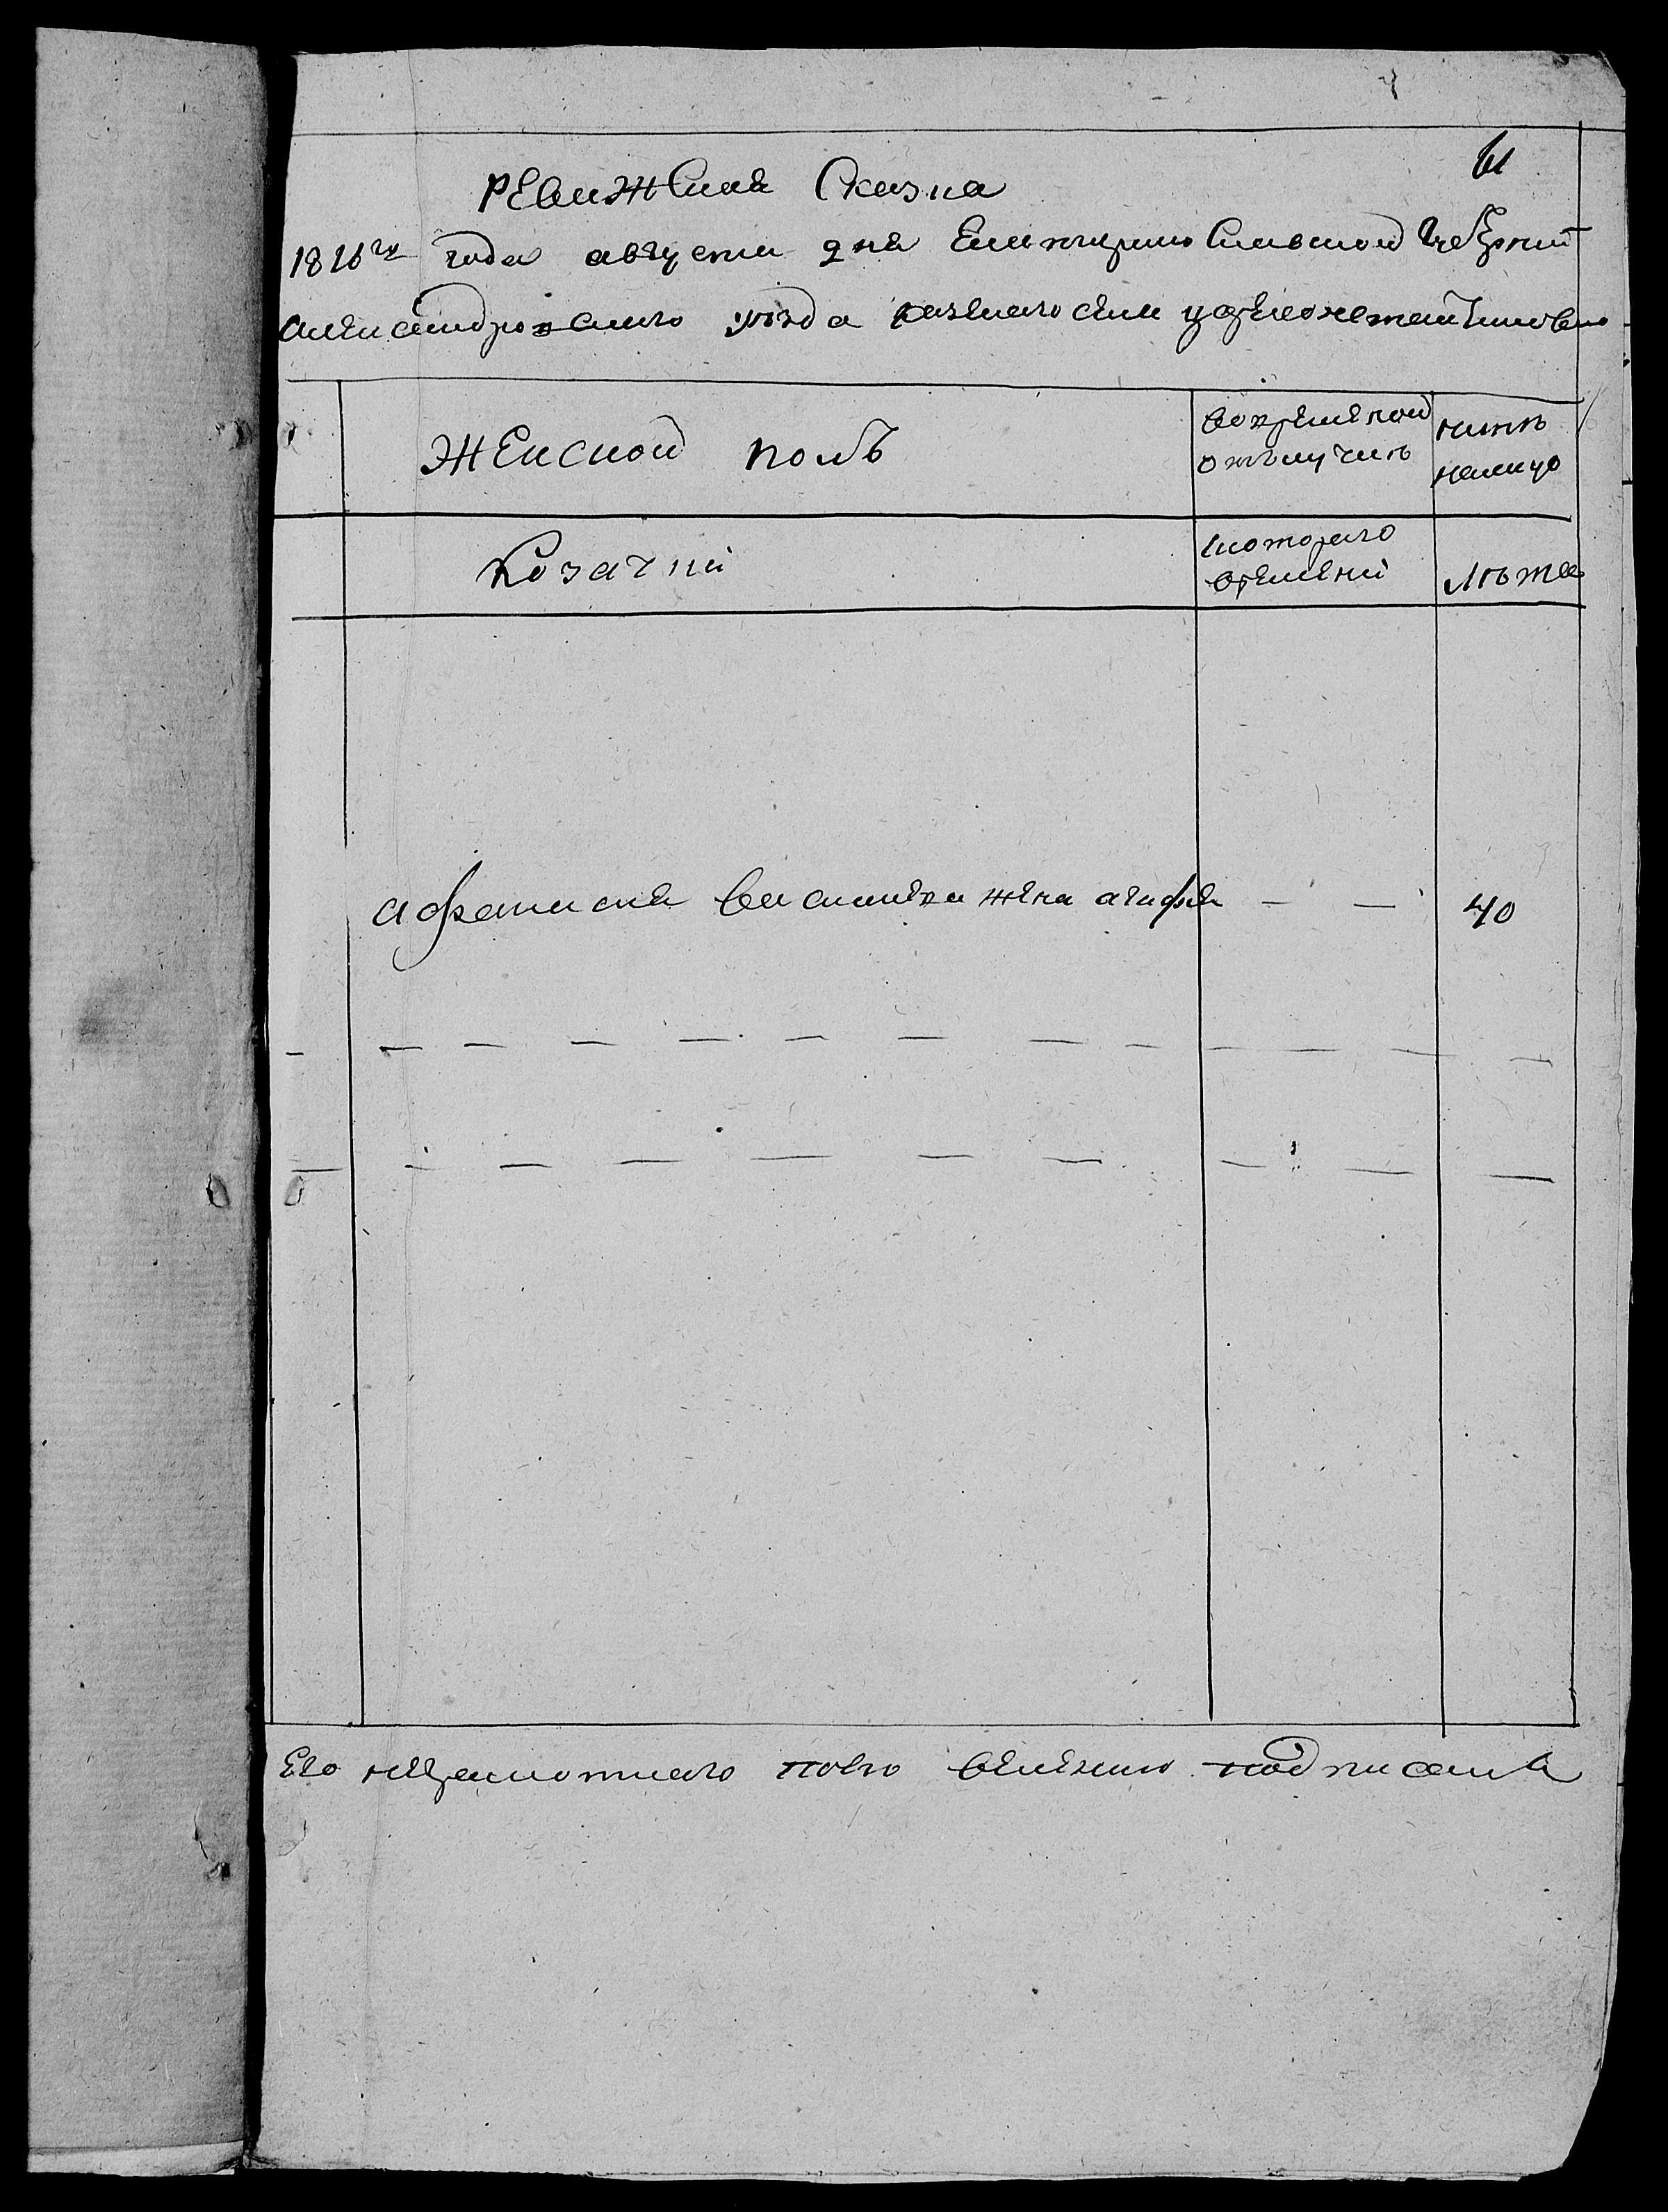 61
Ревижская Сказка
1816го года августа дня Екатерино Славской Губернии
александровского уезда казенаго села
Женской полъ
во временной
отълучкъ
нынъ
налицо
Козачки
скоторого
времени
лъта
афанасия василиева жена агафия — — 40
Его неграмотнаго поево велению подписалъ